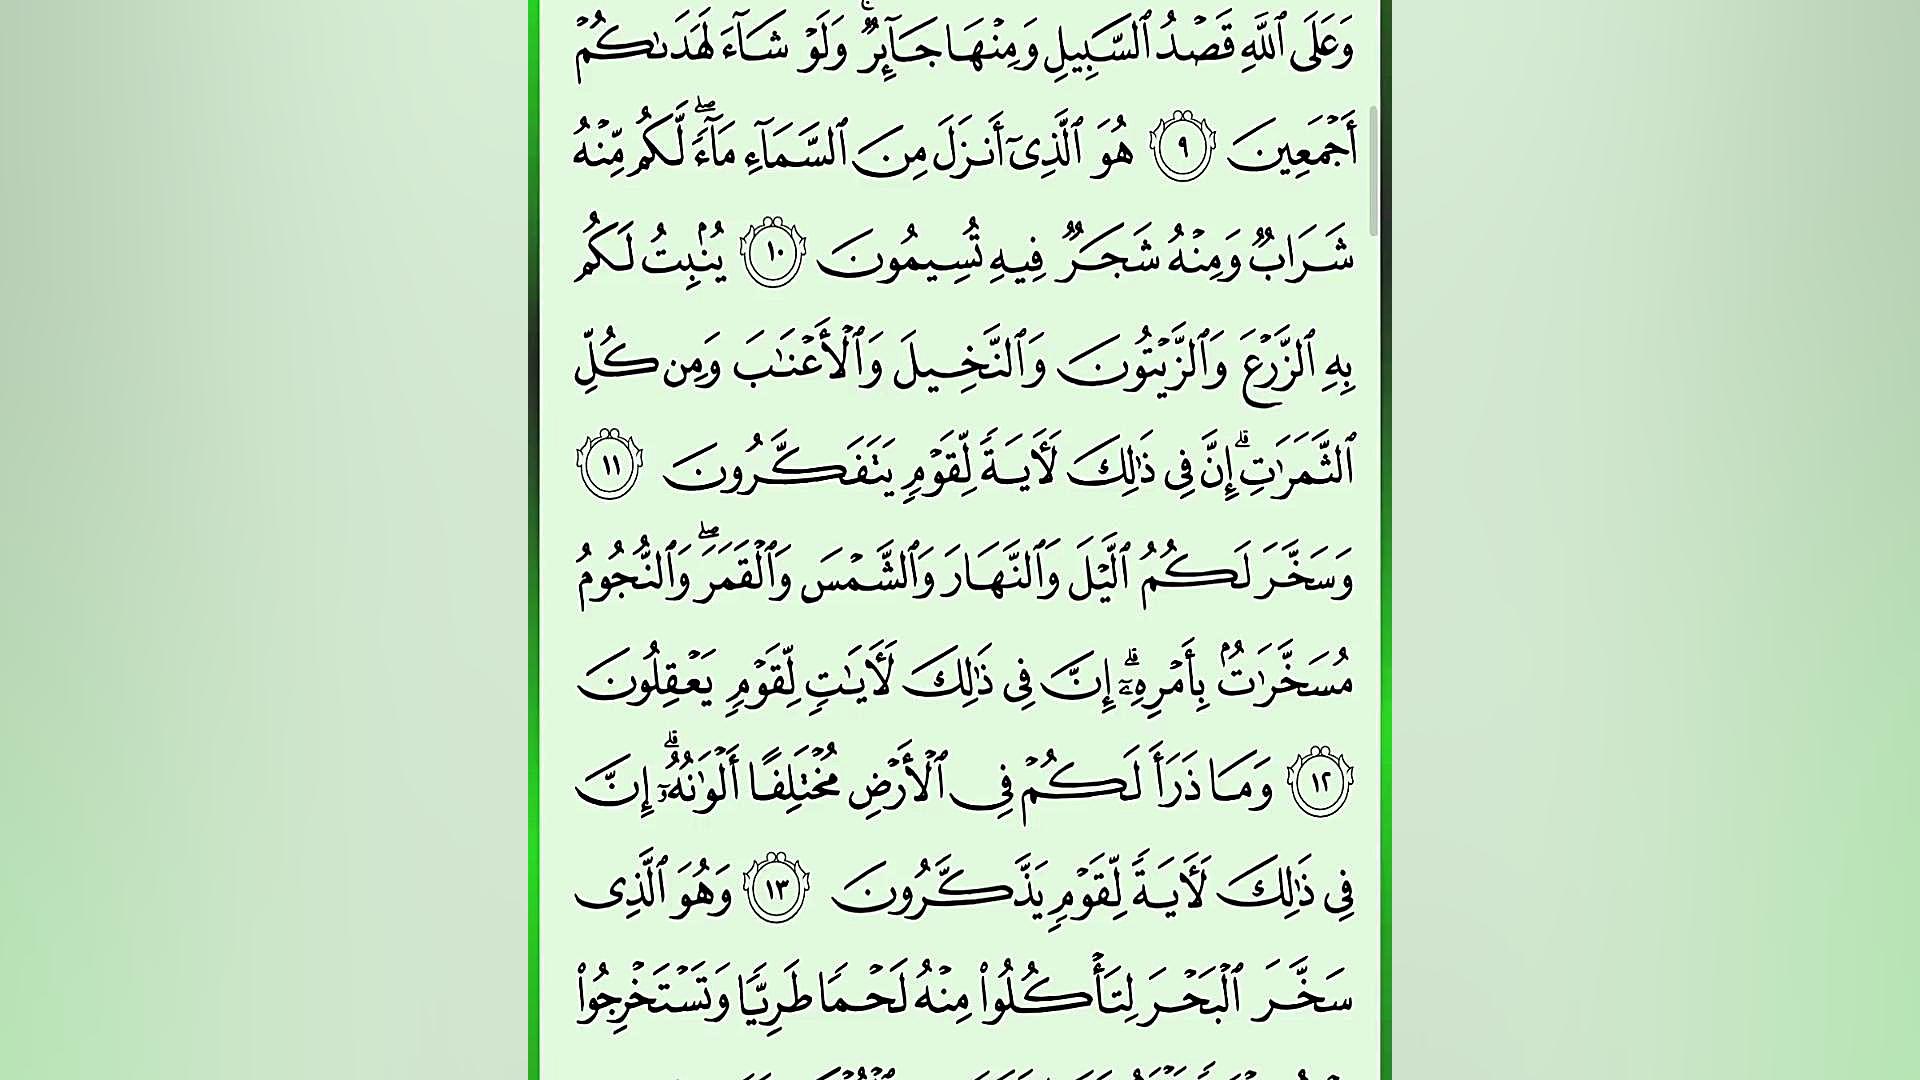 وَعَلَى ٱللَّهِ قَصْدُ ٱلسَّبِيلِ وَمِنْهَا جَآئِرٌ ۚ وَلَوْ شَآءَ لَهَدَىٰكُمْ
أَجْمَعِينَ ٩ هُوَ ٱلَّذِىٓ أَنزَلَ مِنَ ٱلسَّمَآءِ مَآءً ۖ لَّكُم مِّنْهُ
شَرَابٌ وَمِنْهُ شَجَرٌ فِيهِ تُسِيمُونَ ١٠ يُنۢبِتُ لَكُم
بِهِ ٱلزَّرْعَ وَٱلزَّيْتُونَ وَٱلنَّخِيلَ وَٱلْأَعْنَٰبَ وَمِن كُلِّ
ٱلثَّمَرَٰتِ ۗ إِنَّ فِى ذَٰلِكَ لَـَٔايَةً لِّقَوْمٍ يَتَفَكَّرُونَ ١١
وَسَخَّرَ لَكُمُ ٱلَّيْلَ وَٱلنَّهَارَ وَٱلشَّمْسَ وَٱلْقَمَرَ ۖ وَٱلنُّجُومُ
مُسَخَّرَٰتٌۢ بِأَمْرِهِۦٓ ۗ إِنَّ فِى ذَٰلِكَ لَـَٔايَٰتٍ لِّقَوْمٍ يَعْقِلُونَ
١٢ وَمَا ذَرَأَ لَكُمْ فِى ٱلْأَرْضِ مُخْتَلِفًا أَلْوَٰنُهُۥٓ ۗ إِنَّ
فِى ذَٰلِكَ لَـَٔايَةً لِّقَوْمٍ يَذَّكَّرُونَ ١٣ وَهُوَ ٱلَّذِى
سَخَّرَ ٱلْبَحْرَ لِتَأْكُلُوا۟ مِنْهُ لَحْمًا طَرِيًّا وَتَسْتَخْرِجُوا۟